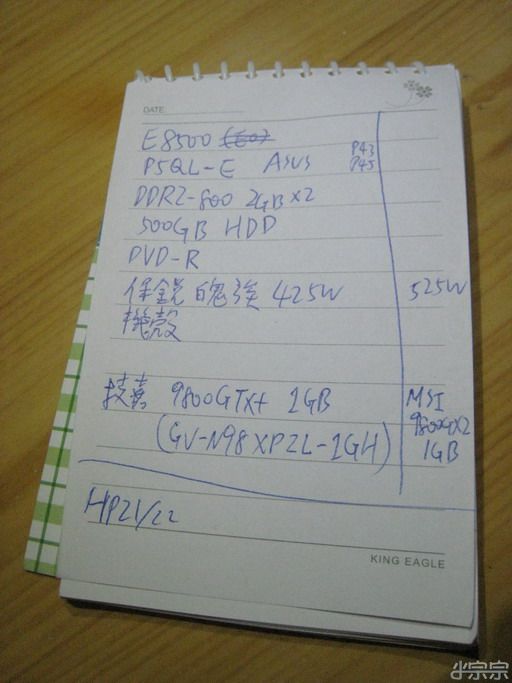 DATE
E8500
P5QL-E Asus P43
P45
DDR2-800 2GB×2
500GB HDD
DVD-R
保銳 魄強 425W 525W
機殼
技嘉 9800GTX+ 1GB MSI
(GV-N98XP2L-1GH) 9800GX2
1GB
HP21/22
KING EAGLE
小宗宗